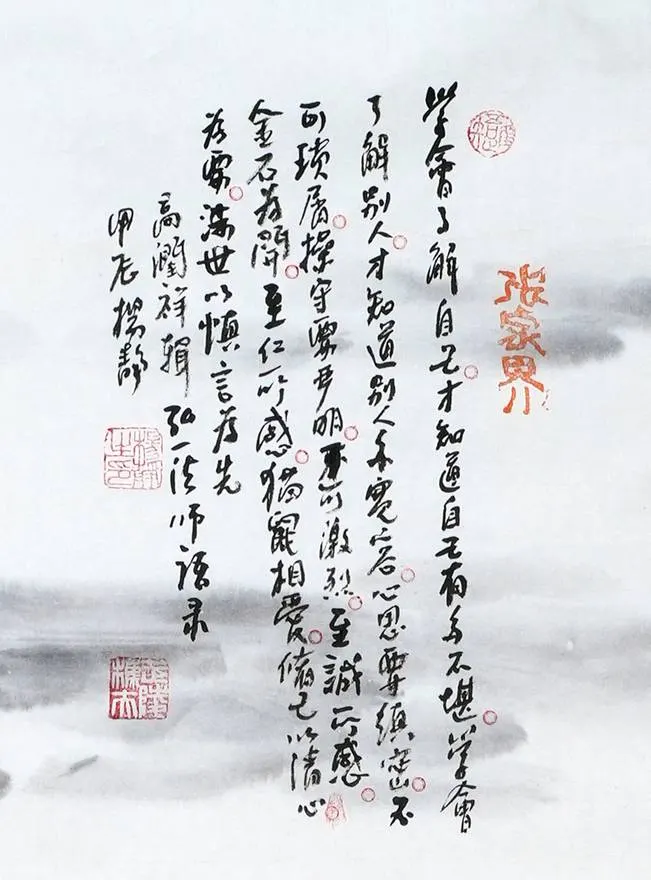 張家界
學會了解自己才知道自己有多不堪學會
了解别人才知道别人多寬容心思要縝密不
可瑣屑操守要严明不可激烈至誠所感
金石为開至仁所感猫鼠相愛脩己以清心
为要涉世以慎言为先
高潤祥輯弘一法师語录
甲辰楊静